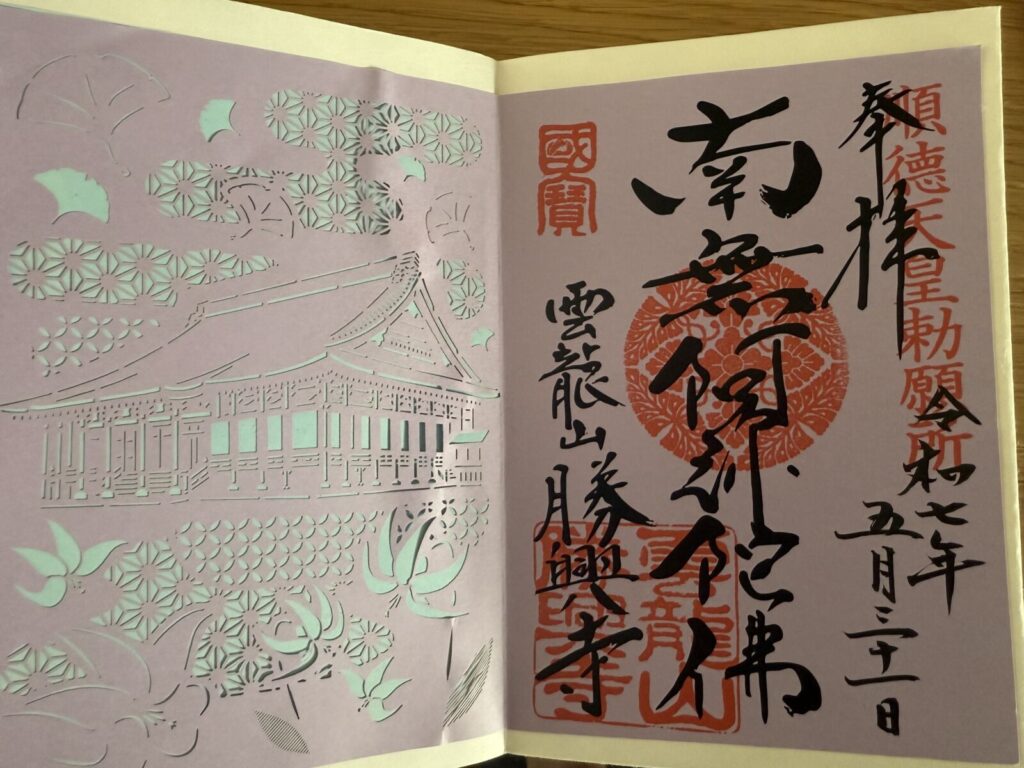 順德天皇勅願所
奉拝
令和七年
五月三十一日
南無阿弥陀佛
國寶
雲龍山勝興寺
雲龍山
勝興寺